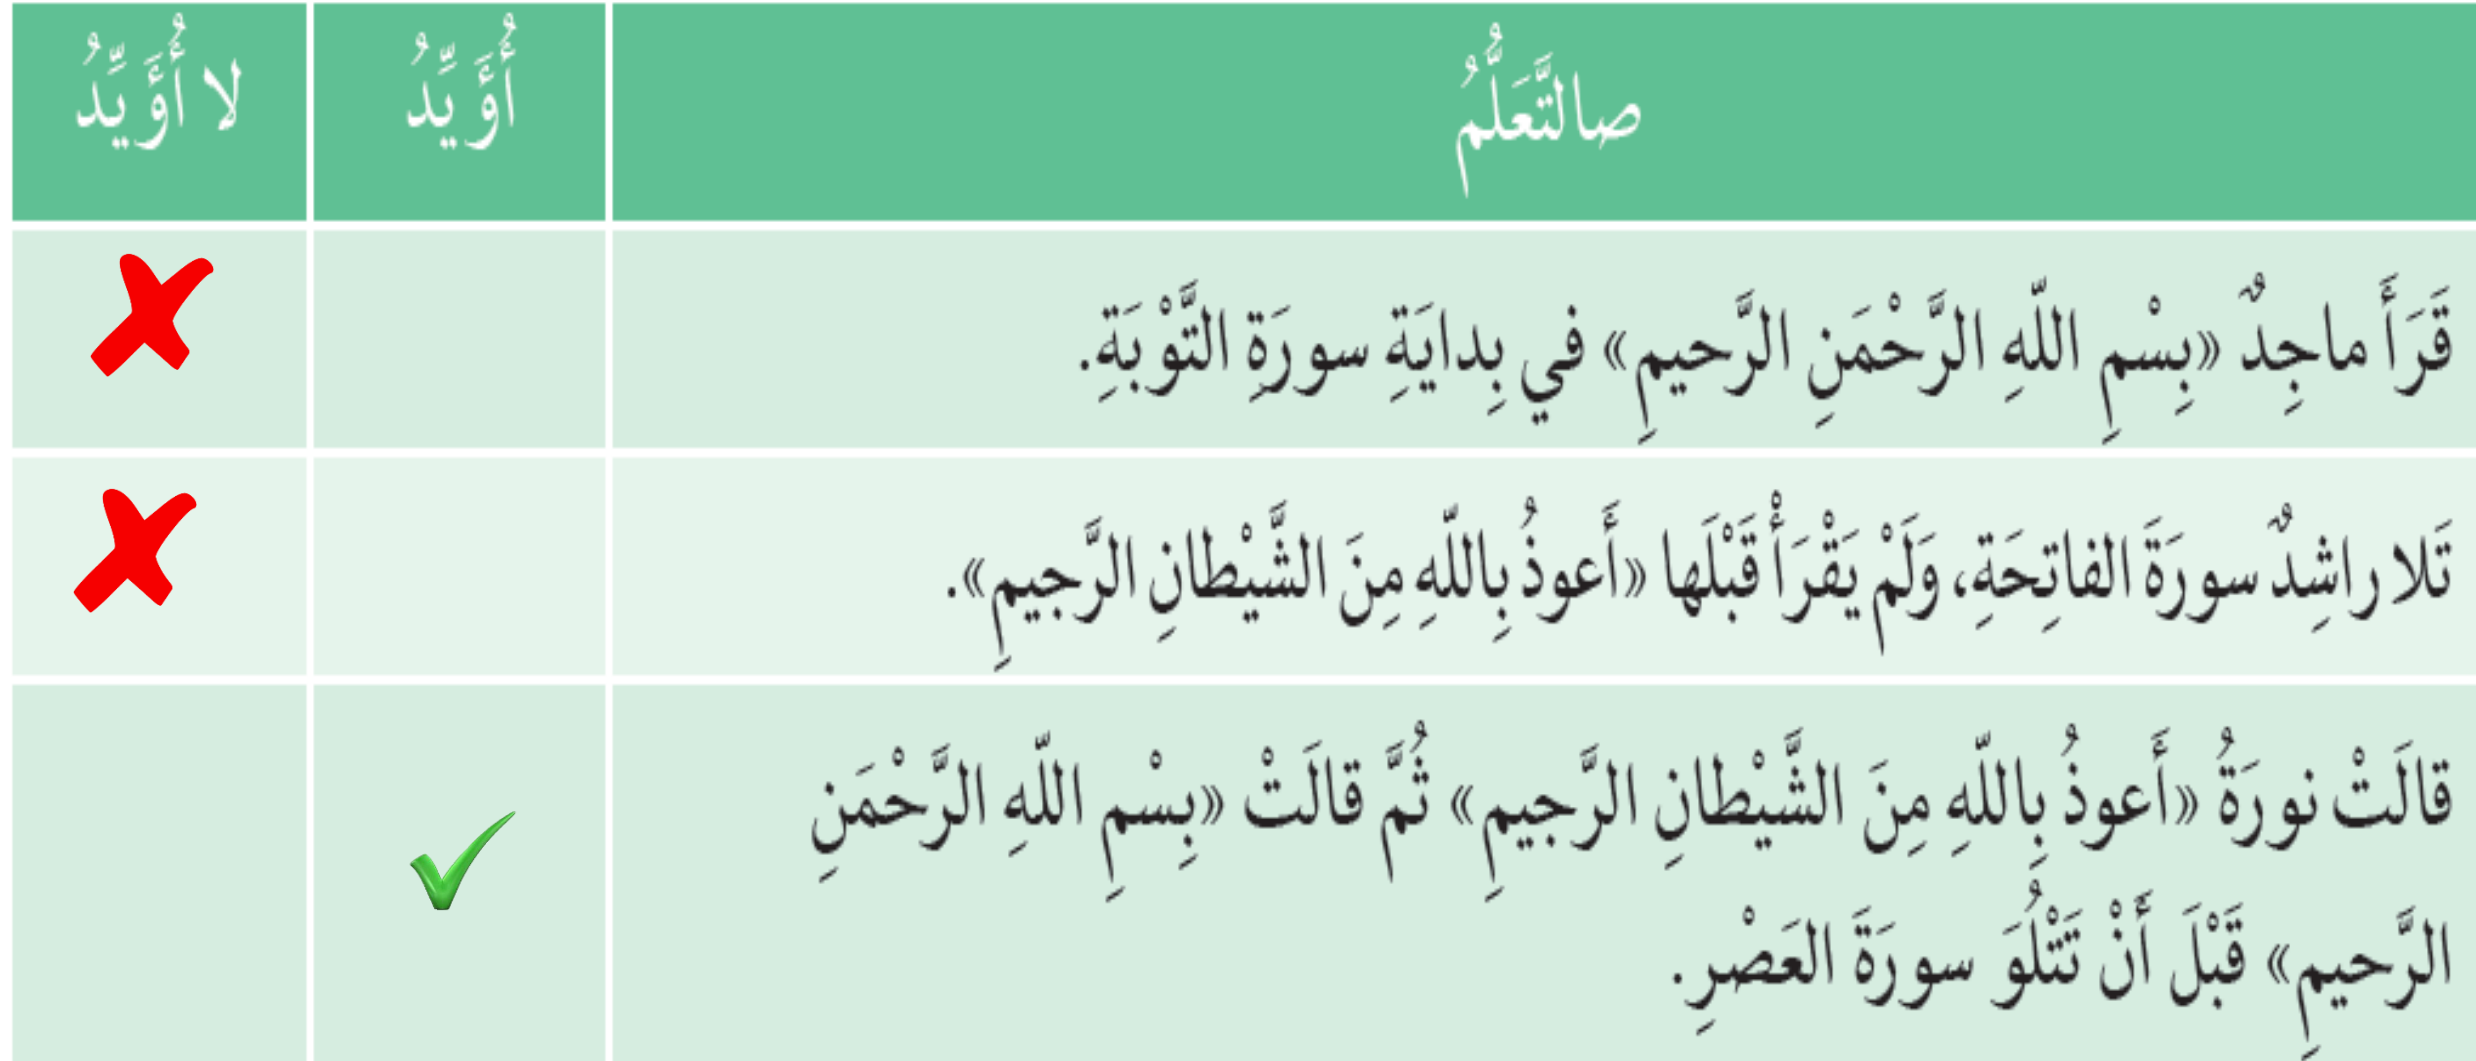 صالتَّعَلُّمُ أُؤَيِّدُ لا أُؤَيِّدُ
قَرَأَ ماجِدٌ «بِسْمِ اللّهِ الرَّحْمَنِ الرَّحيمِ» في بِدايَةِ سورَةِ التَّوْبَةِ.
تَلا راشِدٌ سورَةَ الفاتِحَةِ، وَلَمْ يَقْرَأْ قَبْلَها «أَعوذُ بِاللّهِ مِنَ الشَّيْطانِ الرَّجيمِ».
قالَتْ نورَةُ «أَعوذُ بِاللّهِ مِنَ الشَّيْطانِ الرَّجيمِ» ثُمَّ قالَتْ «بِسْمِ اللّهِ الرَّحْمَنِ
الرَّحيمِ» قَبْلَ أَنْ تَتْلُوَ سورَةَ العَصْرِ.